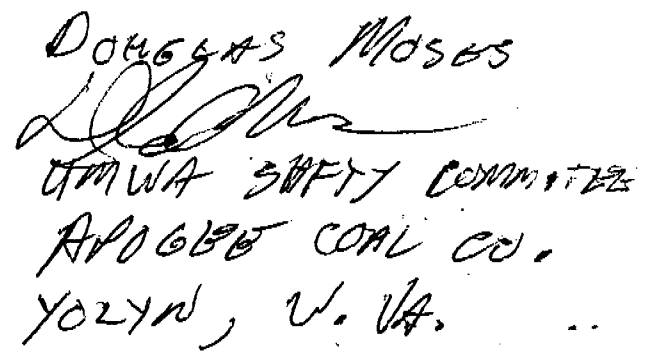 DOUGLAS MOSES
UMWA SAFTY COMMITEE
APOGEE COAL CO.
YOLYN, W. VA.